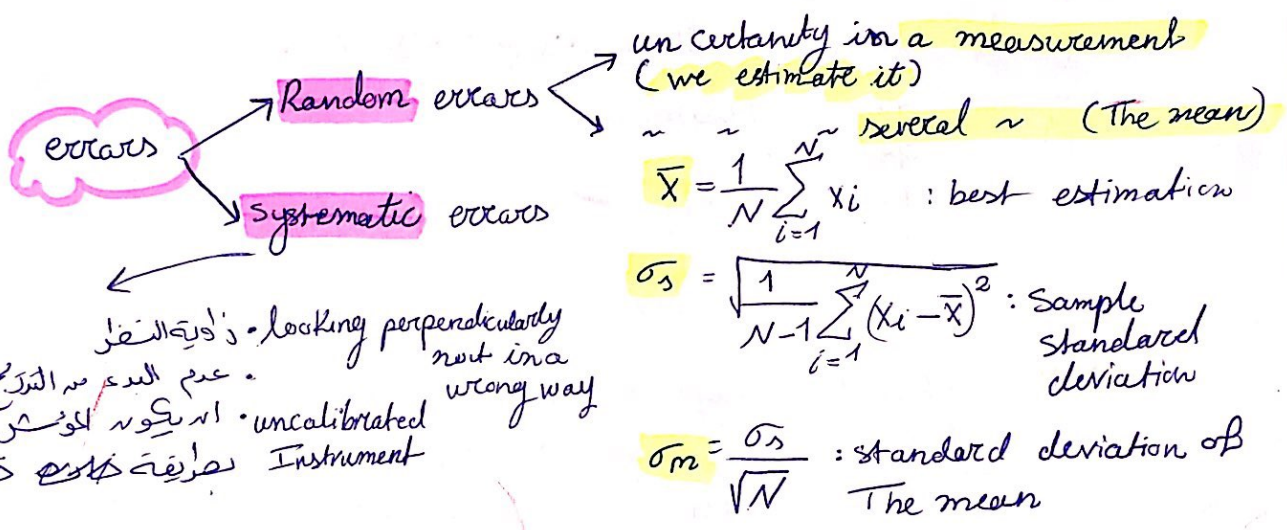 errors
Random errors
Systematic errors
uncertanity in a measurement
(we estimate it)
~ ~ ~ several ~ (The mean)
X̄ = 1/N ∑_{i=1}^{N} xi : best estimation
σs = √(1/(N-1) ∑_{i=1}^{N} (xi - x̄)²) : Sample
standard
deviation
σm = σs/√N : standard deviation of
The mean
زاوية النظر • looking perpendicularly
not in a
wrong way
• عدم البدء من
• ان يكون • uncalibrated
بطريقة Instrument